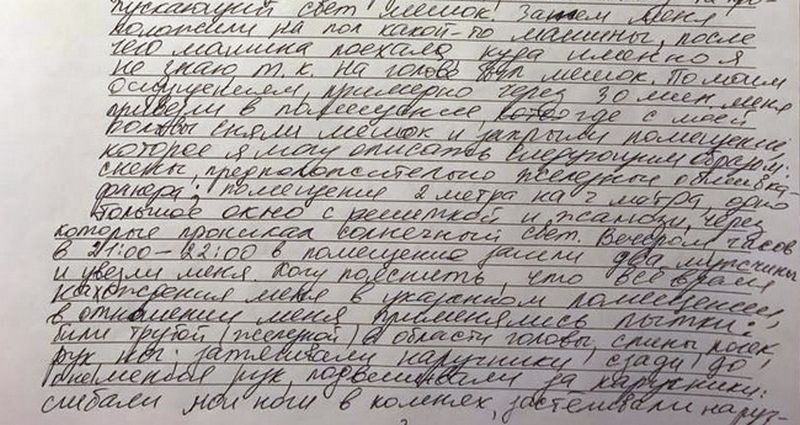 пускающий свет мешок. Затем меня
положили на пол какой-то машины, после
чего машина поехала, куда именно я
не знаю т.к. на голове был мешок. По моим
ощущениям, примерно через 30 мин. меня
привезли в помещение, где с моей
головы сняли мешок и закрыли помещение,
которое я могу описать следующим образом:
стены, предположительно железные обшивка-
фанера; помещение 2 метра на 2 метра, одно
большое окно с решеткой и жалюзи, через
которые проникал солнечный свет. Вечером часов
в 21:00-22:00 в помещение зашли два мужчины
и увезли меня. Могу пояснить, что всё время
нахождения меня в указанном помещении,
в отношении меня применялись пытки:
били трубой (железной) в области головы, спины, почек,
рук, ног: застегивали наручники сзади до
онемения рук, подвешивали за наручники:
сгибали мои ноги в коленях, застегивали наруч-